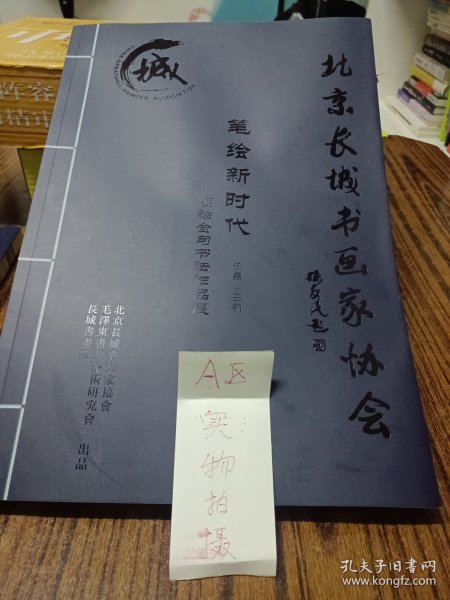 北京长城书画家协会
城
CHINA GREATWALL PAINTER ASSOCIATION
笔绘新时代
——领袖金句书法作品展
北京長城書畫家協會
毛澤東書法藝術研究會
長城書畫院
出品
A区
实物拍摄
孔夫子旧书网
www.kongfz.com